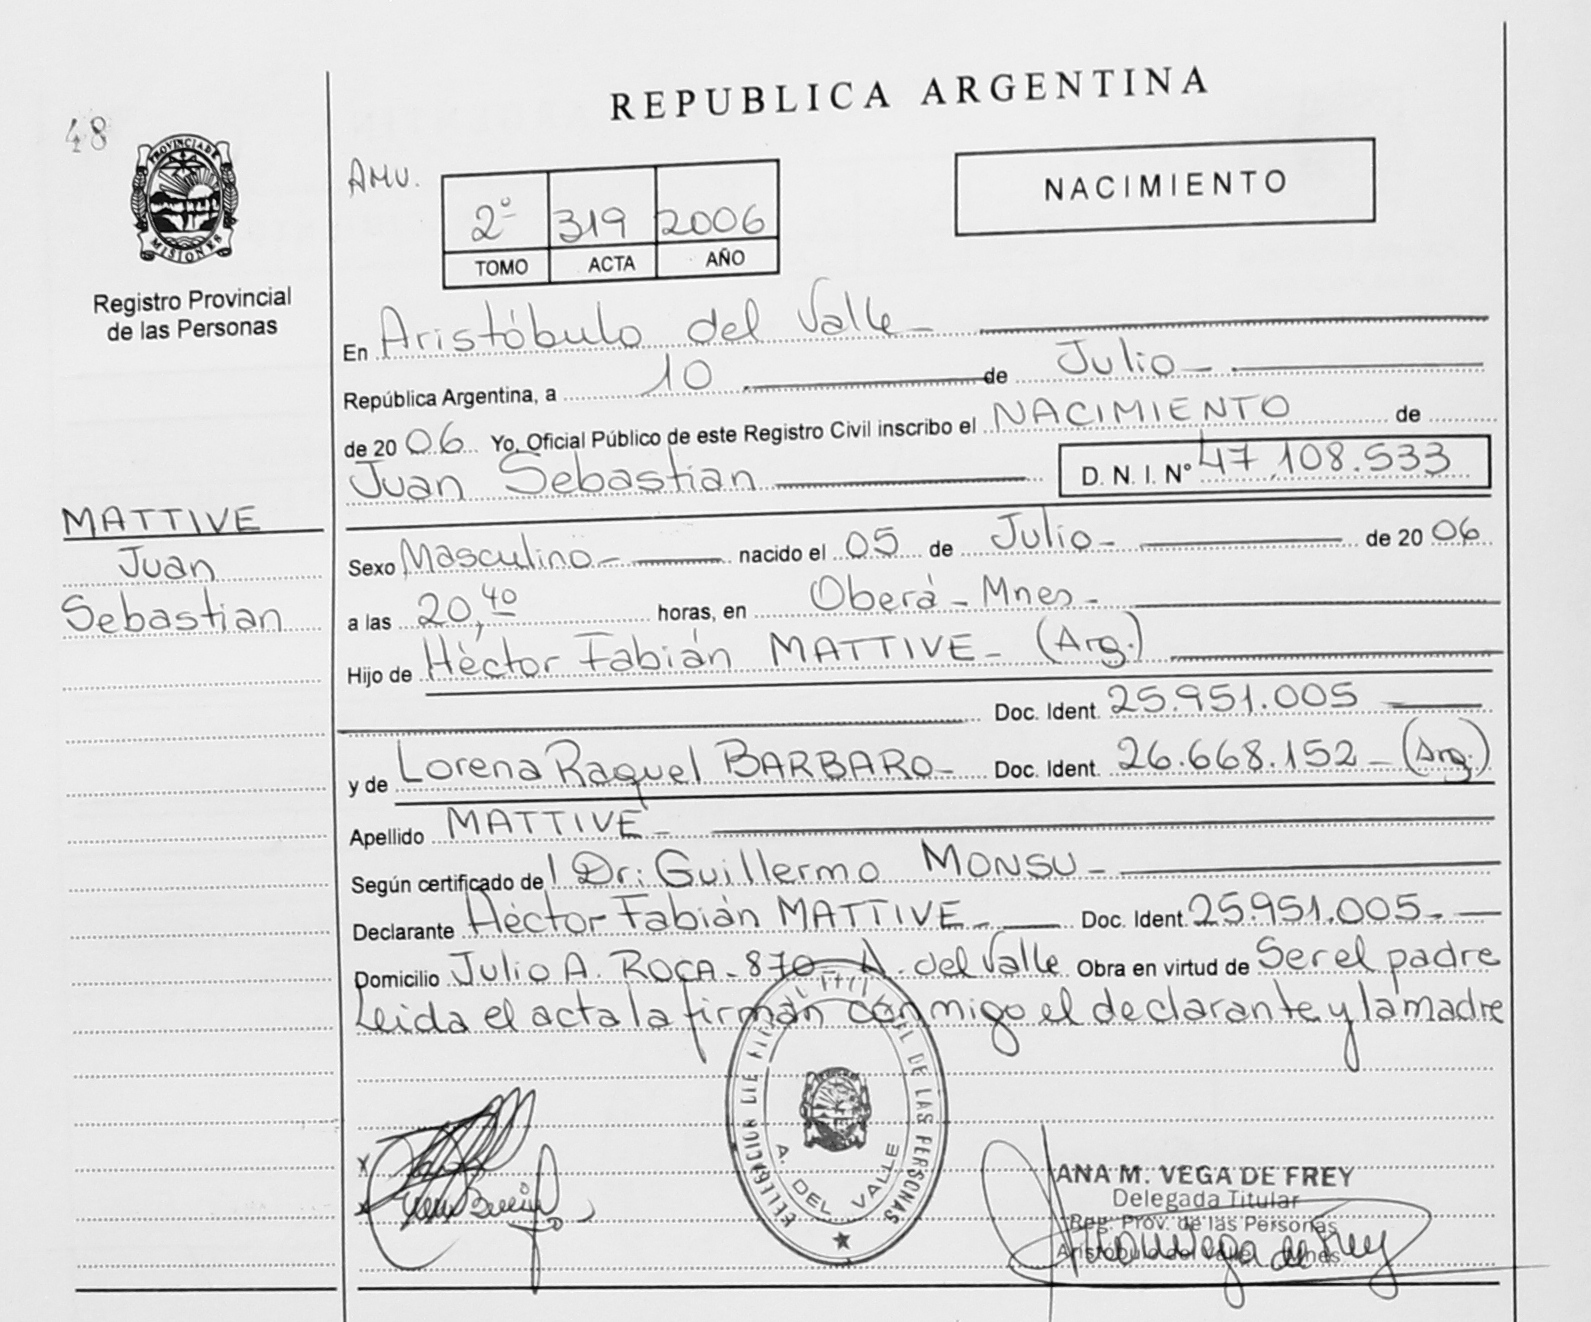 REPUBLICA ARGENTINA
48
PROVINCIA DE
MISIONES
Registro Provincial
de las Personas
AMU.
NACIMIENTO
2º 319 2006
TOMO ACTA AÑO
En Aristóbulo del Valle
República Argentina, a 10 de Julio
de 2006 Yo, Oficial Público de este Registro Civil inscribo el NACIMIENTO de
Juan Sebastian D. N. I. Nº 47.108.533
MATTIVE
Juan
Sebastian
Sexo Masculino nacido el 05 de Julio de 2006
a las 20,40 horas, en Oberá - Mnes -
Hijo de Héctor Fabián MATTIVE - (Arg.)
Doc. Ident. 25.951.005
y de Lorena Raquel BARBARO - Doc. Ident. 26.668.152 - (Arg.)
Apellido MATTIVE -
Según certificado del Dr: Guillermo MONSU -
Declarante Héctor Fabián MATTIVE - Doc. Ident. 25.951.005 -
Domicilio Julio A. ROCA - 870 - A. del Valle Obra en virtud de Ser el padre
Leida el acta la firman conmigo el declarante y la madre
DE LAS PERSONAS
A. DEL VALLE
ANA M. VEGA DE FREY
Delegada Titular
Reg. Prov. de las Personas
Aristóbulo del Valle Mnes